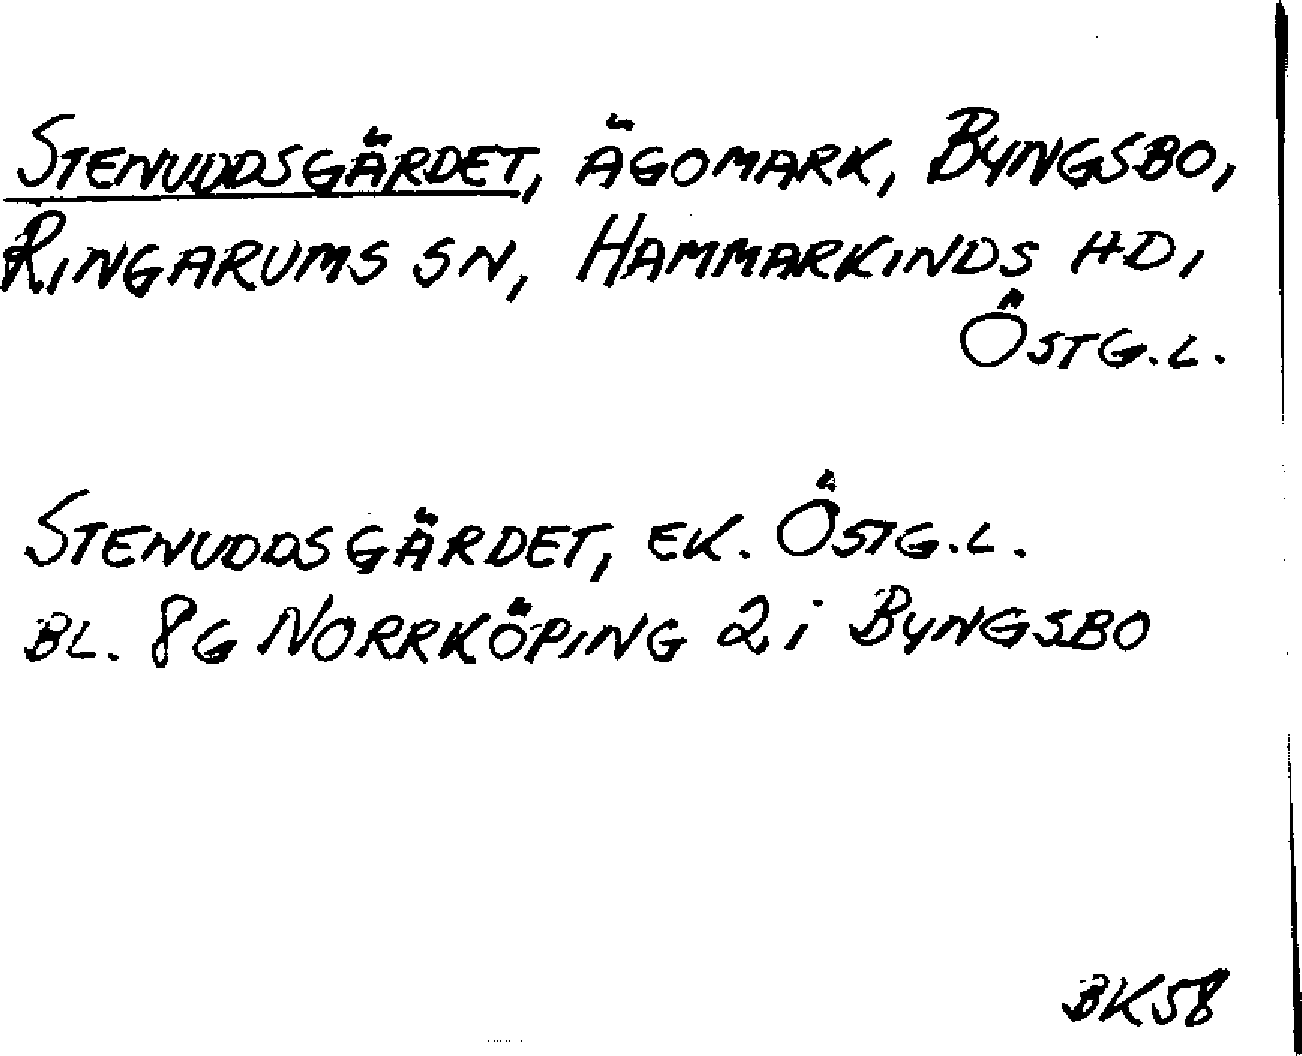 STENUDDSGÄRDET, ÄGOMARK, BYNGSBO,
RINGARUMS SN, HAMMARKINDS HD,
ÖSTG.L.
STENUDDSGÄRDET, EK. ÖSTG.L.
BL. 8G NORRKÖPING 2 i BYNGSBO
BK58